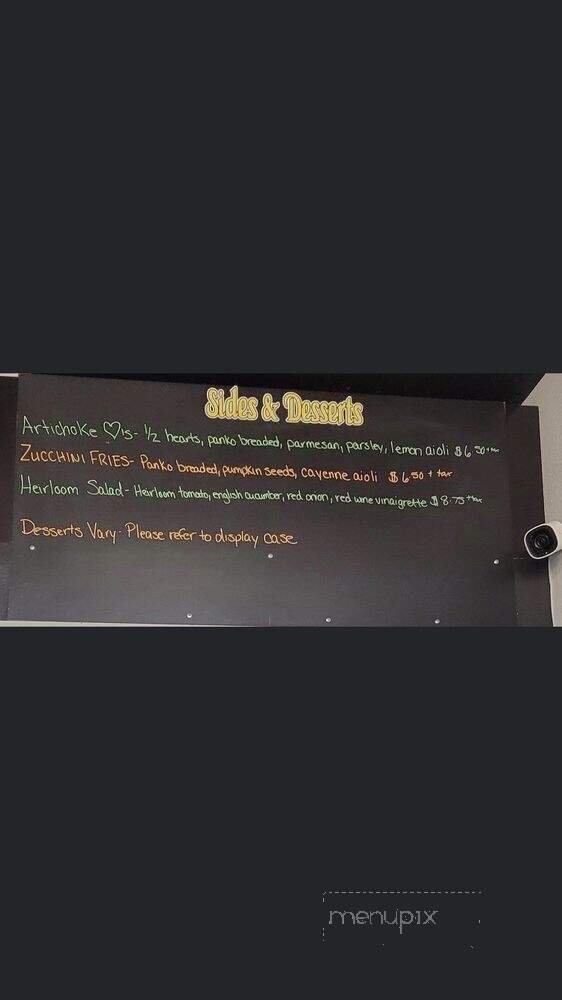 Sides & Desserts
Artichoke ♡'s - 1/2 hearts, panko breaded, parmesan, parsley, lemon aioli $6.50 + tax
ZUCCHINI FRIES - Panko breaded, pumpkin seeds, cayenne aioli $6.50 + tax
Heirloom Salad - Heirloom tomato, english cucumber, red onion, red wine vinaigrette $8.75 + tax
Desserts Vary - Please refer to display case
menupix